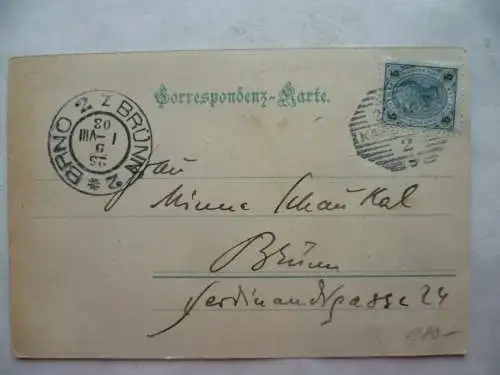 Correspondenz-Karte.
5 5
5 5
BRNO 2 Z BRÜNN 2
1 -VIII
03
Frau
Minna Schaukal
Brünn
Ferdinandsgasse 24